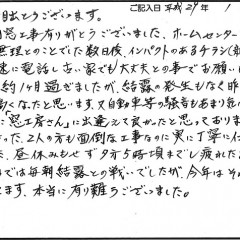 ご記入日 平成29年 1
目出とうございます。
窓工事有りがとうございました。ホームセンター
無理とのことでした数日後、インパクトのあるチラシ(
速に電話し古い家でも大丈夫との事でお願い
約1ヶ月過ぎましたが、結露の発生もなく昨
くなたと思います。又自動車等の騒音もあまり
「窓工房さん」に出逢えて良かったと思っておりま
った。2人の方も面倒な工事なのに実に丁寧に
た、昼休みもせず夕方5時頃までし疲れた
では毎朝結露との戦いでしたが、今年は
ます、本当に有難うございました。